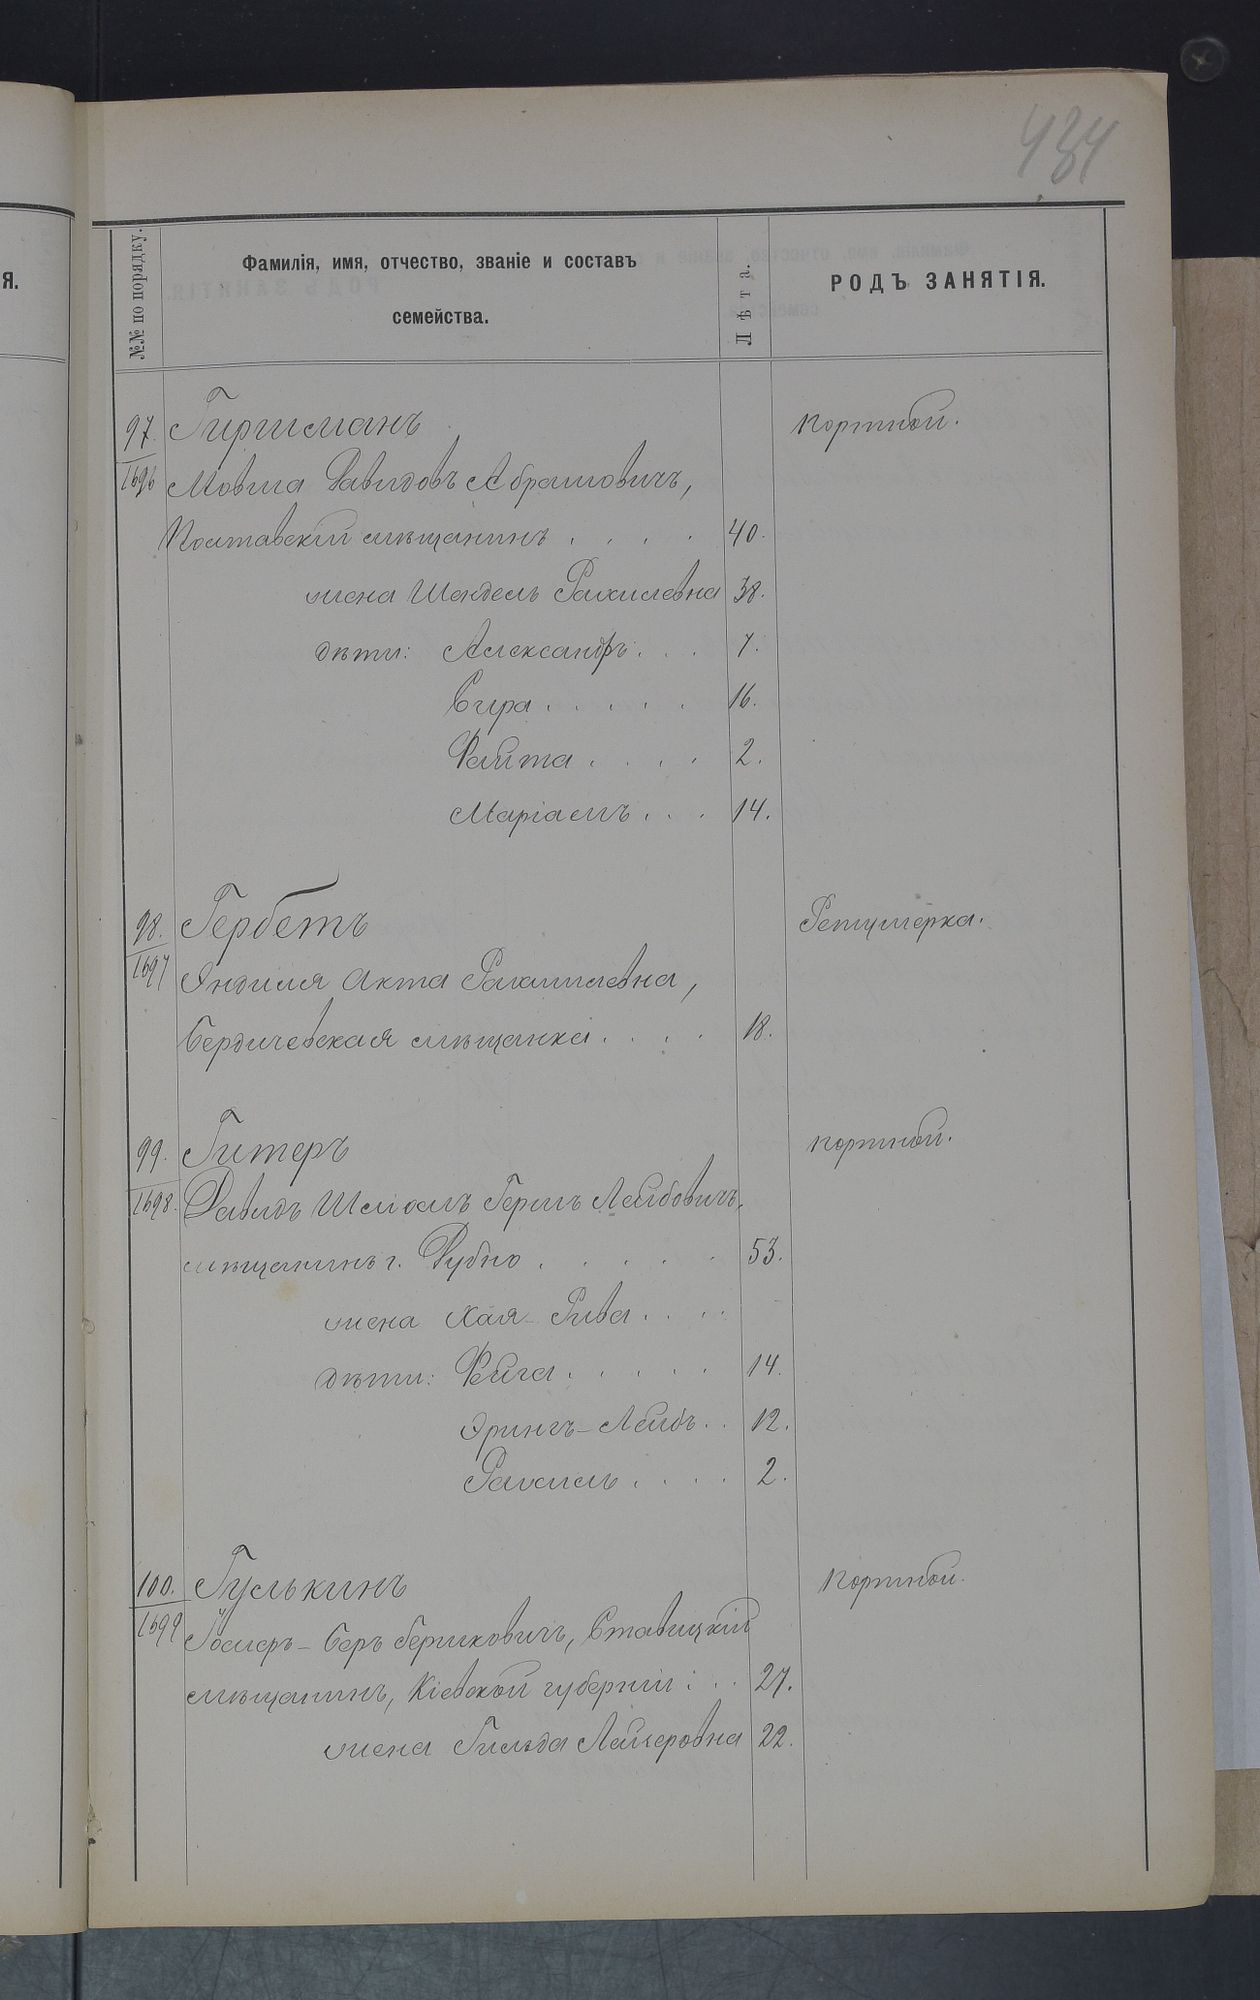 434
Я.
№№ по порядку.
Фамилія, имя, отчество, званіе и составъ
семейства.
Лѣта.
РОДЪ ЗАНЯТІЯ.
97. Гиршманъ портной.
1696 Мовша Давидовъ Абрамовичъ,
Полтавскій мѣщанинъ . . . . 40.
жена Шендель Рахилевна 38.
дѣти: Александръ . . . 7.
Сира . . . . . 16.
Файта . . . . 2.
Маріамъ . . . 14.
98. Гербетъ Ретушерка.
1697 Рахмилевна,
Бердичевская мѣщанка . . . . 18.
99. Гитеръ портной.
1698. Давидъ Шмолъ Гершъ Лейбовичъ,
мѣщанинъ г. Дубно . . . . . 53.
жена Хая-Рива . . . .
дѣти: Фейга . . . . . 14.
Лейбъ . . 12.
Рахиль . . . . 2.
100. Гулькинъ Портной.
1699 Беръ Берковичъ, Ставицкій
мѣщанинъ, Кіевской губерніи . . . 27.
жена Гильда Лейзеровна 22.